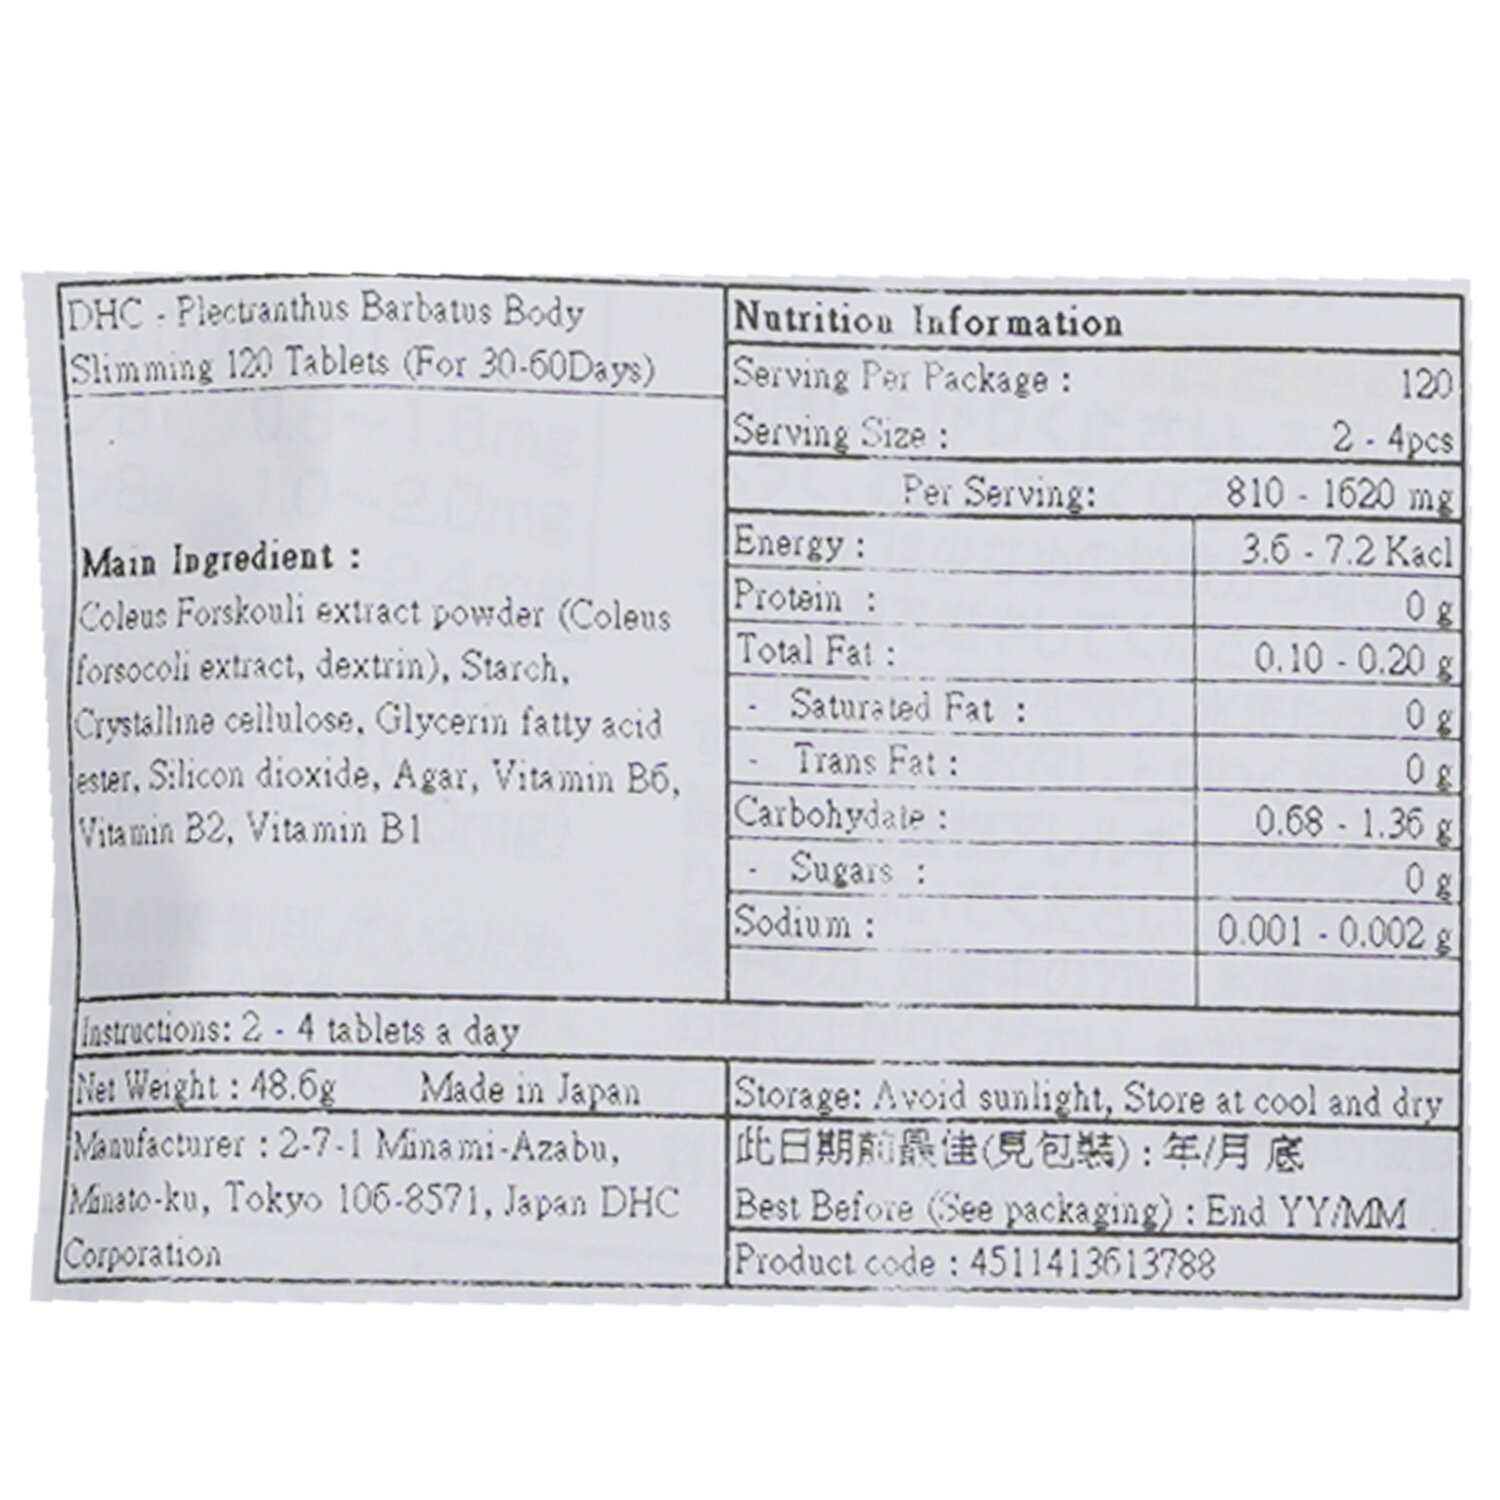 DHC - Plectranthus Barbatus Body
Slimming 120 Tablets (For 30-60Days)
Main Ingredient :
Coleus Forskouli extract powder (Coleus
forsocoli extract, dextrin), Starch,
Crystalline cellulose, Glycerin fatty acid
ester, Silicon dioxide, Agar, Vitamin B6,
Vitamin B2, Vitamin B1
Nutrition Information
Serving Per Package : 120
Serving Size : 2 - 4pcs
Per Serving: 810 - 1620 mg
Energy : 3.6 - 7.2 Kacl
Protein : 0 g
Total Fat : 0.10 - 0.20 g
- Saturated Fat : 0 g
- Trans Fat : 0 g
Carbohydate : 0.68 - 1.36 g
- Sugars : 0 g
Sodium : 0.001 - 0.002 g
Instructions: 2 - 4 tablets a day
Net Weight : 48.6g Made in Japan
Manufacturer : 2-7-1 Minami-Azabu,
Minato-ku, Tokyo 106-8571, Japan DHC
Corporation
Storage: Avoid sunlight, Store at cool and dry
此日期前最佳(見包裝) : 年/月 底
Best Before (See packaging) : End YY/MM
Product code : 4511413613788